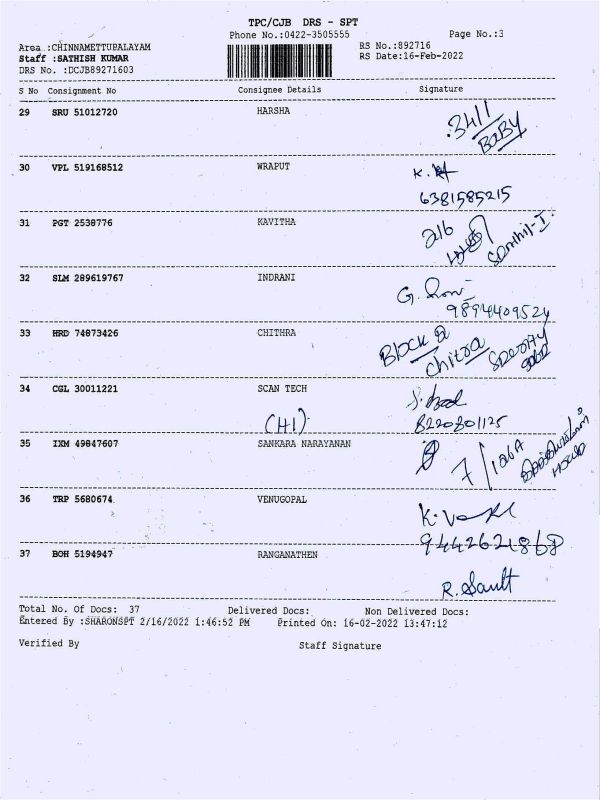 TPC/CJB DRS - SPT
Phone No.:0422-3505555 Page No.:3
Area :CHINNAMETTUPALAYAM RS No.:892716
Staff :SATHISH KUMAR RS Date:16-Feb-2022
DRS No. :DCJB89271603
S No Consignment No Consignee Details Signature
29 SRU 51012720 HARSHA
3411
BABY
30 VPL 519168512 WRAPUT
6381585215
31 PGT 2538776 KAVITHA
216
32 SLM 289619767 INDRANI
9894409524
33 HRD 74873426 CHITHRA
Block
Chitra
34 CGL 30011221 SCAN TECH
(H1) 8220801125
35 IXM 49847607 SANKARA NARAYANAN
36 TRP 5680674 VENUGOPAL
9442621868
37 BOH 5194947 RANGANATHEN
Total No. Of Docs: 37 Delivered Docs: Non Delivered Docs:
Entered By :SHARONSPT 2/16/2022 1:46:52 PM Printed On: 16-02-2022 13:47:12
Verified By Staff Signature